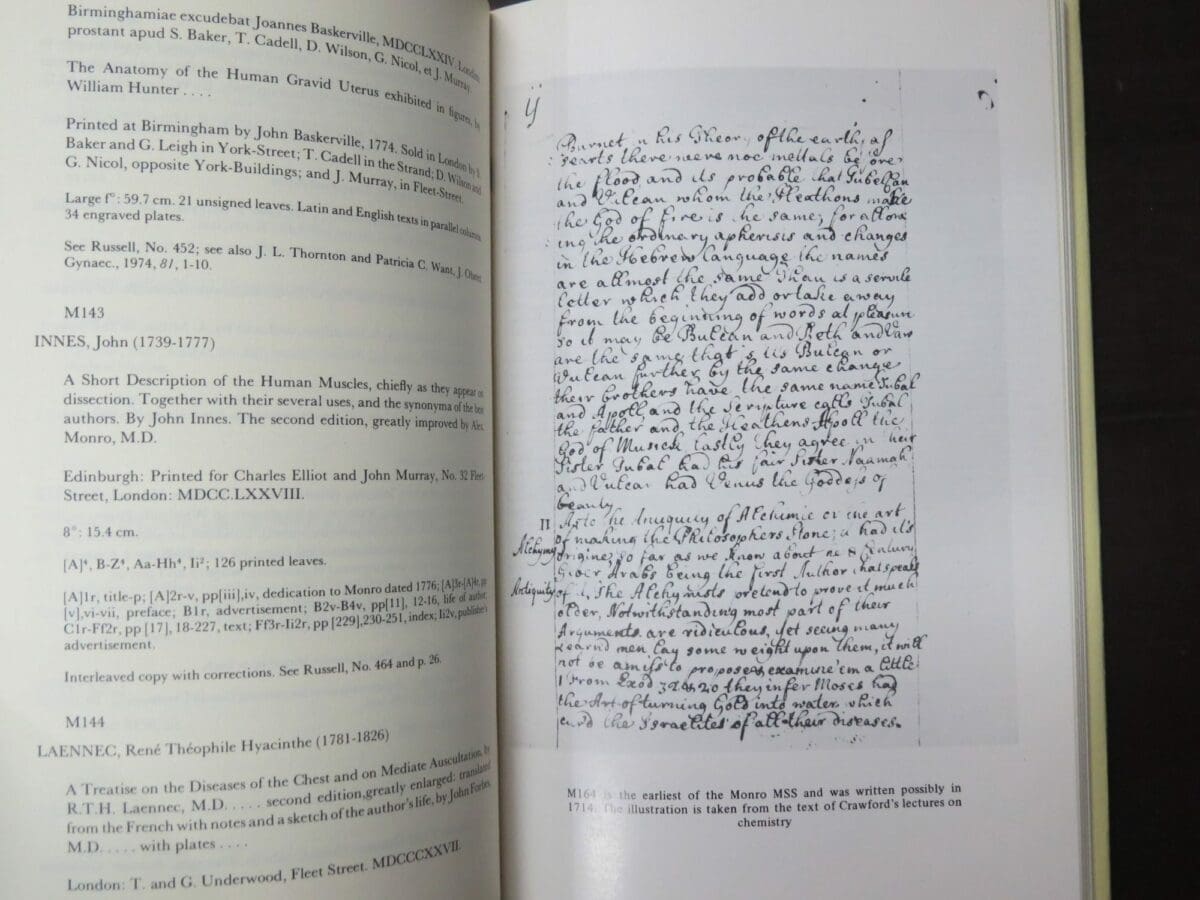 Birminghamiae excudebat Joannes Baskerville, MDCCLXXIV. London
prostant apud S. Baker, T. Cadell, D. Wilson, G. Nicol, et J. Murray.
The Anatomy of the Human Gravid Uterus exhibited in figures, by
William Hunter . . . .
Printed at Birmingham by John Baskerville, 1774. Sold in London by S.
Baker and G. Leigh in York-Street; T. Cadell in the Strand; D. Wilson and
G. Nicol, opposite York-Buildings; and J. Murray, in Fleet-Street.
Large f°: 59.7 cm. 21 unsigned leaves. Latin and English texts in parallel columns.
34 engraved plates.
See Russell, No. 452; see also J. L. Thornton and Patricia C. Want, J. Obstet.
Gynaec., 1974, 81, 1-10.
M143
INNES, John (1739-1777)
A Short Description of the Human Muscles, chiefly as they appear on
dissection. Together with their several uses, and the synonyma of the best
authors. By John Innes. The second edition, greatly improved by Alex.
Monro, M.D.
Edinburgh: Printed for Charles Elliot and John Murray, No. 32 Fleet-
Street, London: MDCC.LXXVIII.
8°: 15.4 cm.
[A]⁴, B-Z⁴, Aa-Hh⁴, Ii²; 126 printed leaves.
[A]1r, title-p; [A]2r-v, pp[iii],iv, dedication to Monro dated 1776; [A]3r-[A]4r, pp
[v],vi-vii, preface; B1r, advertisement; B2v-B4v, pp[11], 12-16, life of author;
C1r-Ff2r, pp [17], 18-227, text; Ff3r-Ii2r, pp [229],230-251, index; Ii2v, publisher's
advertisement.
Interleaved copy with corrections. See Russell, No. 464 and p. 26.
M144
LAENNEC, René Théophile Hyacinthe (1781-1826)
A Treatise on the Diseases of the Chest and on Mediate Auscultation, by
R.T.H. Laennec, M.D. . . . . second edition,greatly enlarged: translated
from the French with notes and a sketch of the author's life, by John Forbes,
M.D. . . . . with plates . . . .
London: T. and G. Underwood, Fleet Street. MDCCCXXVII.
Burnet in his Theory of the earth, as
there were noe mettals before
the flood and its probable that Tubelcan
and Vulcan whom the Heathons make
the God of fire is the same; for allow
ing the ordinary apherisis and changes
in the Hebrew language the names
are allmost the same Than is a servile
letter which they add or take away
from the beginning of words at pleasure
so it may be Bulcan and Beth and Vau
are the same that is its Bulcan or
Vulcan further by the same change
their brothers have the same name Tubal
and Apoll and the Scripture calls Tubal
the father and the Heathens Apoll the
God of Musick lastly they agree in their
Sister Tubal had his fair Sister Naamah
and Vulcan had Venus the Goddess of
beauty
II As to the Antiquity of Alchimie or the art
Alchymy of making the Philosophers Stone; it had it's
origine; so far as we know about the 8 Century
Arabs being the first Author that speaks
Antiquity of it, The Alchymists pretend to prove it much
older, Notwithstanding most part of their
Arguments are ridiculous, yet seeing many
Learnd men lay some weight upon them, it will
not be amiss to propose & examine 'em a little
1 From Exod 32 & 20 they infer Moses had
the Art of turning Gold into water which
curd the Israelites of all their diseases.
M164 is the earliest of the Monro MSS and was written possibly in
1714. The illustration is taken from the text of Crawford's lectures on
chemistry